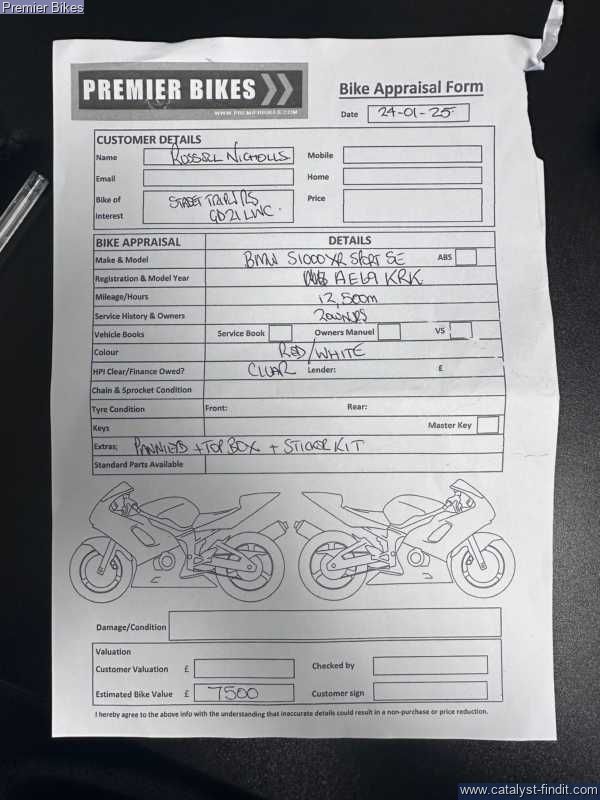 Premier Bikes
PREMIER BIKES
WWW.PREMIERBIKES.COM
Bike Appraisal Form
Date 24-01-25
CUSTOMER DETAILS
Name RUSSELL NICHOLLS Mobile
Email Home
Bike of Interest STREET TRIPLE RS Price
GD21 LWC.
BIKE APPRAISAL DETAILS
Make & Model BMW S1000XR SPORT SE ABS
Registration & Model Year AE69 KRK
Mileage/Hours 12,500m
Service History & Owners 2 OWNERS
Vehicle Books Service Book Owners Manuel V5
Colour RED/WHITE
HPI Clear/Finance Owed? CLEAR Lender: £
Chain & Sprocket Condition
Tyre Condition Front: Rear:
Keys Master Key
Extras; PANNIERS + TOP BOX + STICKER KIT
Standard Parts Available
Damage/Condition
Valuation
Customer Valuation £ Checked by
Estimated Bike Value £ 7500 Customer sign
I hereby agree to the above info with the understanding that inaccurate details could result in a non-purchase or price reduction.
www.catalyst-findit.com